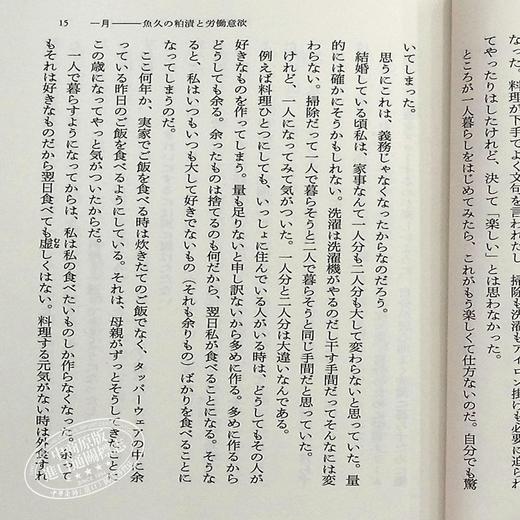 た。料理が下手でよく文句を言われたし、掃除も洗濯もアイロン掛けも迫られ
てやったりはしたけれど、決して「楽しい」とは思わなかった。
ところが一人暮らしをはじめてみたら、これがもう楽しくて仕方ないのだ。自分でも驚
15 一月――魚久の粕漬と労働意欲
いてしまった。
思うにこれは、義務じゃなくなったからなのだろう。
結婚している頃私は、家事なんて一人分も二人分も大して変わらないと思っていた。量
的には確かにそうかもしれない。洗濯は洗濯機がやるのだし干す手間だってそんなには変
わらない。掃除だって一人で暮らそうと二人で暮らそうと同じ手間だと思っていた。
けれど、一人になってみて気がついた。一人分と二人分は大違いなんである。
例えば料理ひとつにしても、いっしょに住んでいる人がいる時は、どうしてもその人が
好きなものを作ってしまう。量も足りないと申し訳ないから多めに作る。多めに作るから
どうしても余る。余ったものは捨てるのも何だから、翌日私が食べることになる。そうな
ると、私はいつもいつも大して好きでないもの（それも余りもの）ばかりを食べることに
なってしまうのだ。
ここ何年か、実家でご飯を食べる時は炊きたてのご飯でなく、タッパーウェアの中に余
っている昨日のご飯を食べるようにしている。それは、母親がずっとそうしてきたことに
この歳になってやっと気がついたからだ。
一人で暮らすようになってからは、私は私の食べたいものしか作らなくなった。余って
もそれは好きなものだから翌日食べても虚しくはない。料理する元気がない時は外食すれ